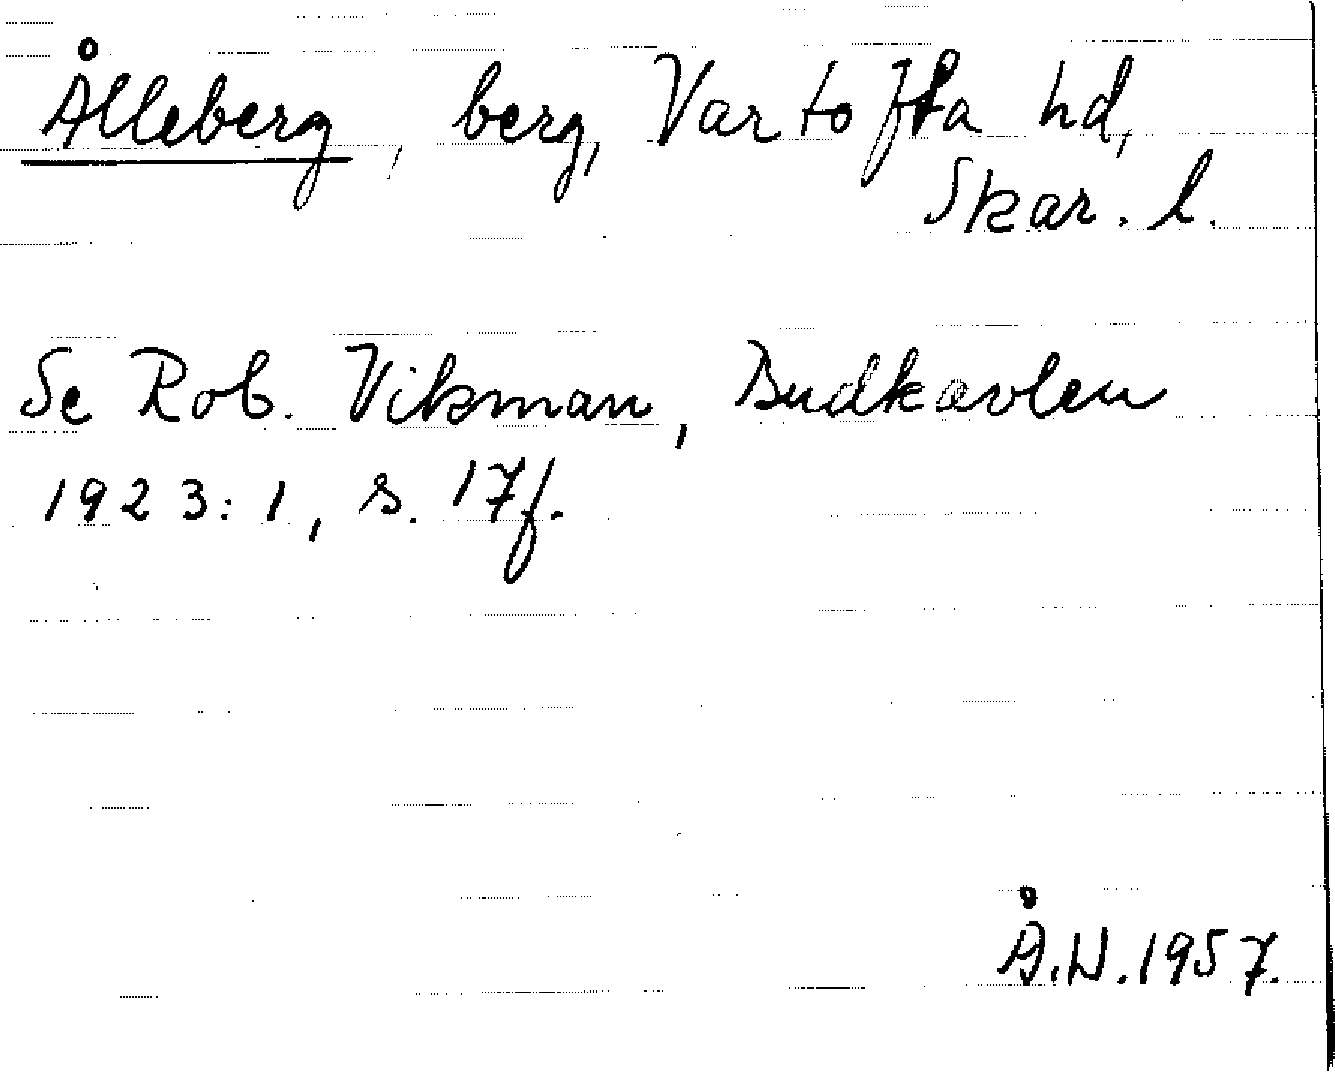 Ålleberg, berg, Vartofta hd,
Skar. l.
Se Rob. Vikman, Budkavlen
1923:1, s. 17f.
Å.N.1957.